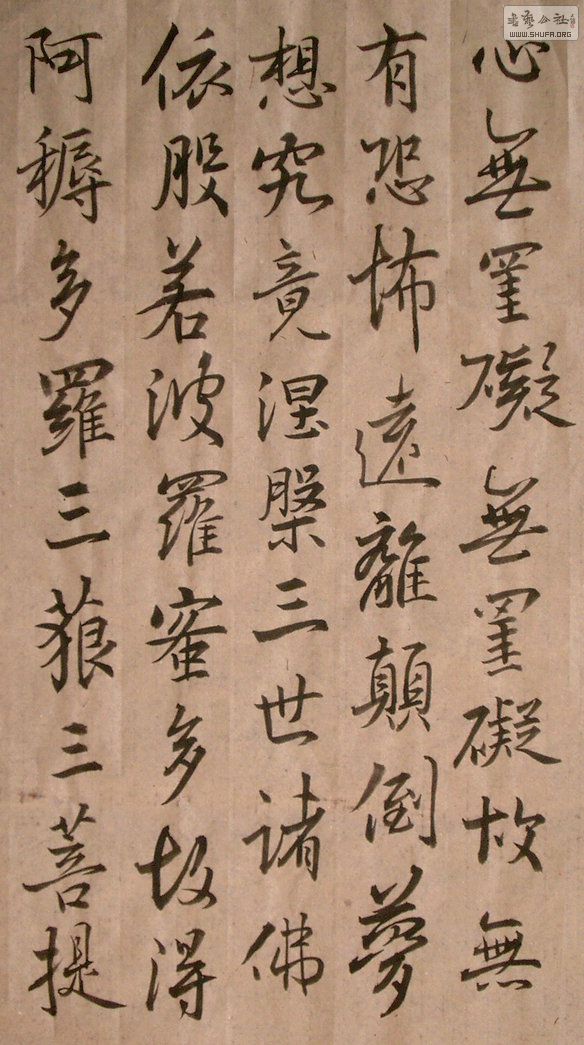 心無罣礙無罣礙故無
有恐怖遠離顛倒夢
想究竟涅槃三世諸佛
依般若波羅蜜多故得
阿耨多羅三藐三菩提
書藝公社
WWW.SHUFA.ORG